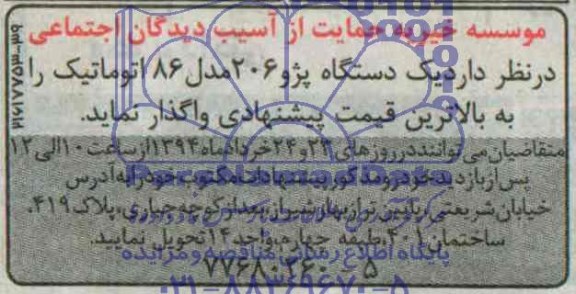 موسسه خیریه حمایت از آسیب دیدگان اجتماعی
درنظر دارد یک دستگاه پژو ۲۰۶ مدل ۸۶ اتوماتیک را
به بالاترین قیمت پیشنهادی واگذار نماید.
متقاضیان می توانند در روزهای ۲۳ و ۲۴ خردادماه ۱۳۹۴ از ساعت ۱۰ الی ۱۲
پس از بازدید خودرو مذکور پیشنهادات مکتوب خود را به آدرس
خیابان شریعتی، پایین تر از بهار شیراز، بعد از کوچه جباری، پلاک ۴۱۹،
ساختمان ۴۰۱، طبقه چهارم، واحد ۱۴ تحویل نمایید.
پایگاه اطلاع رسانی مناقصه و مزایده
۰۲۱-۸۸۳۴۹۶۷۰-۵